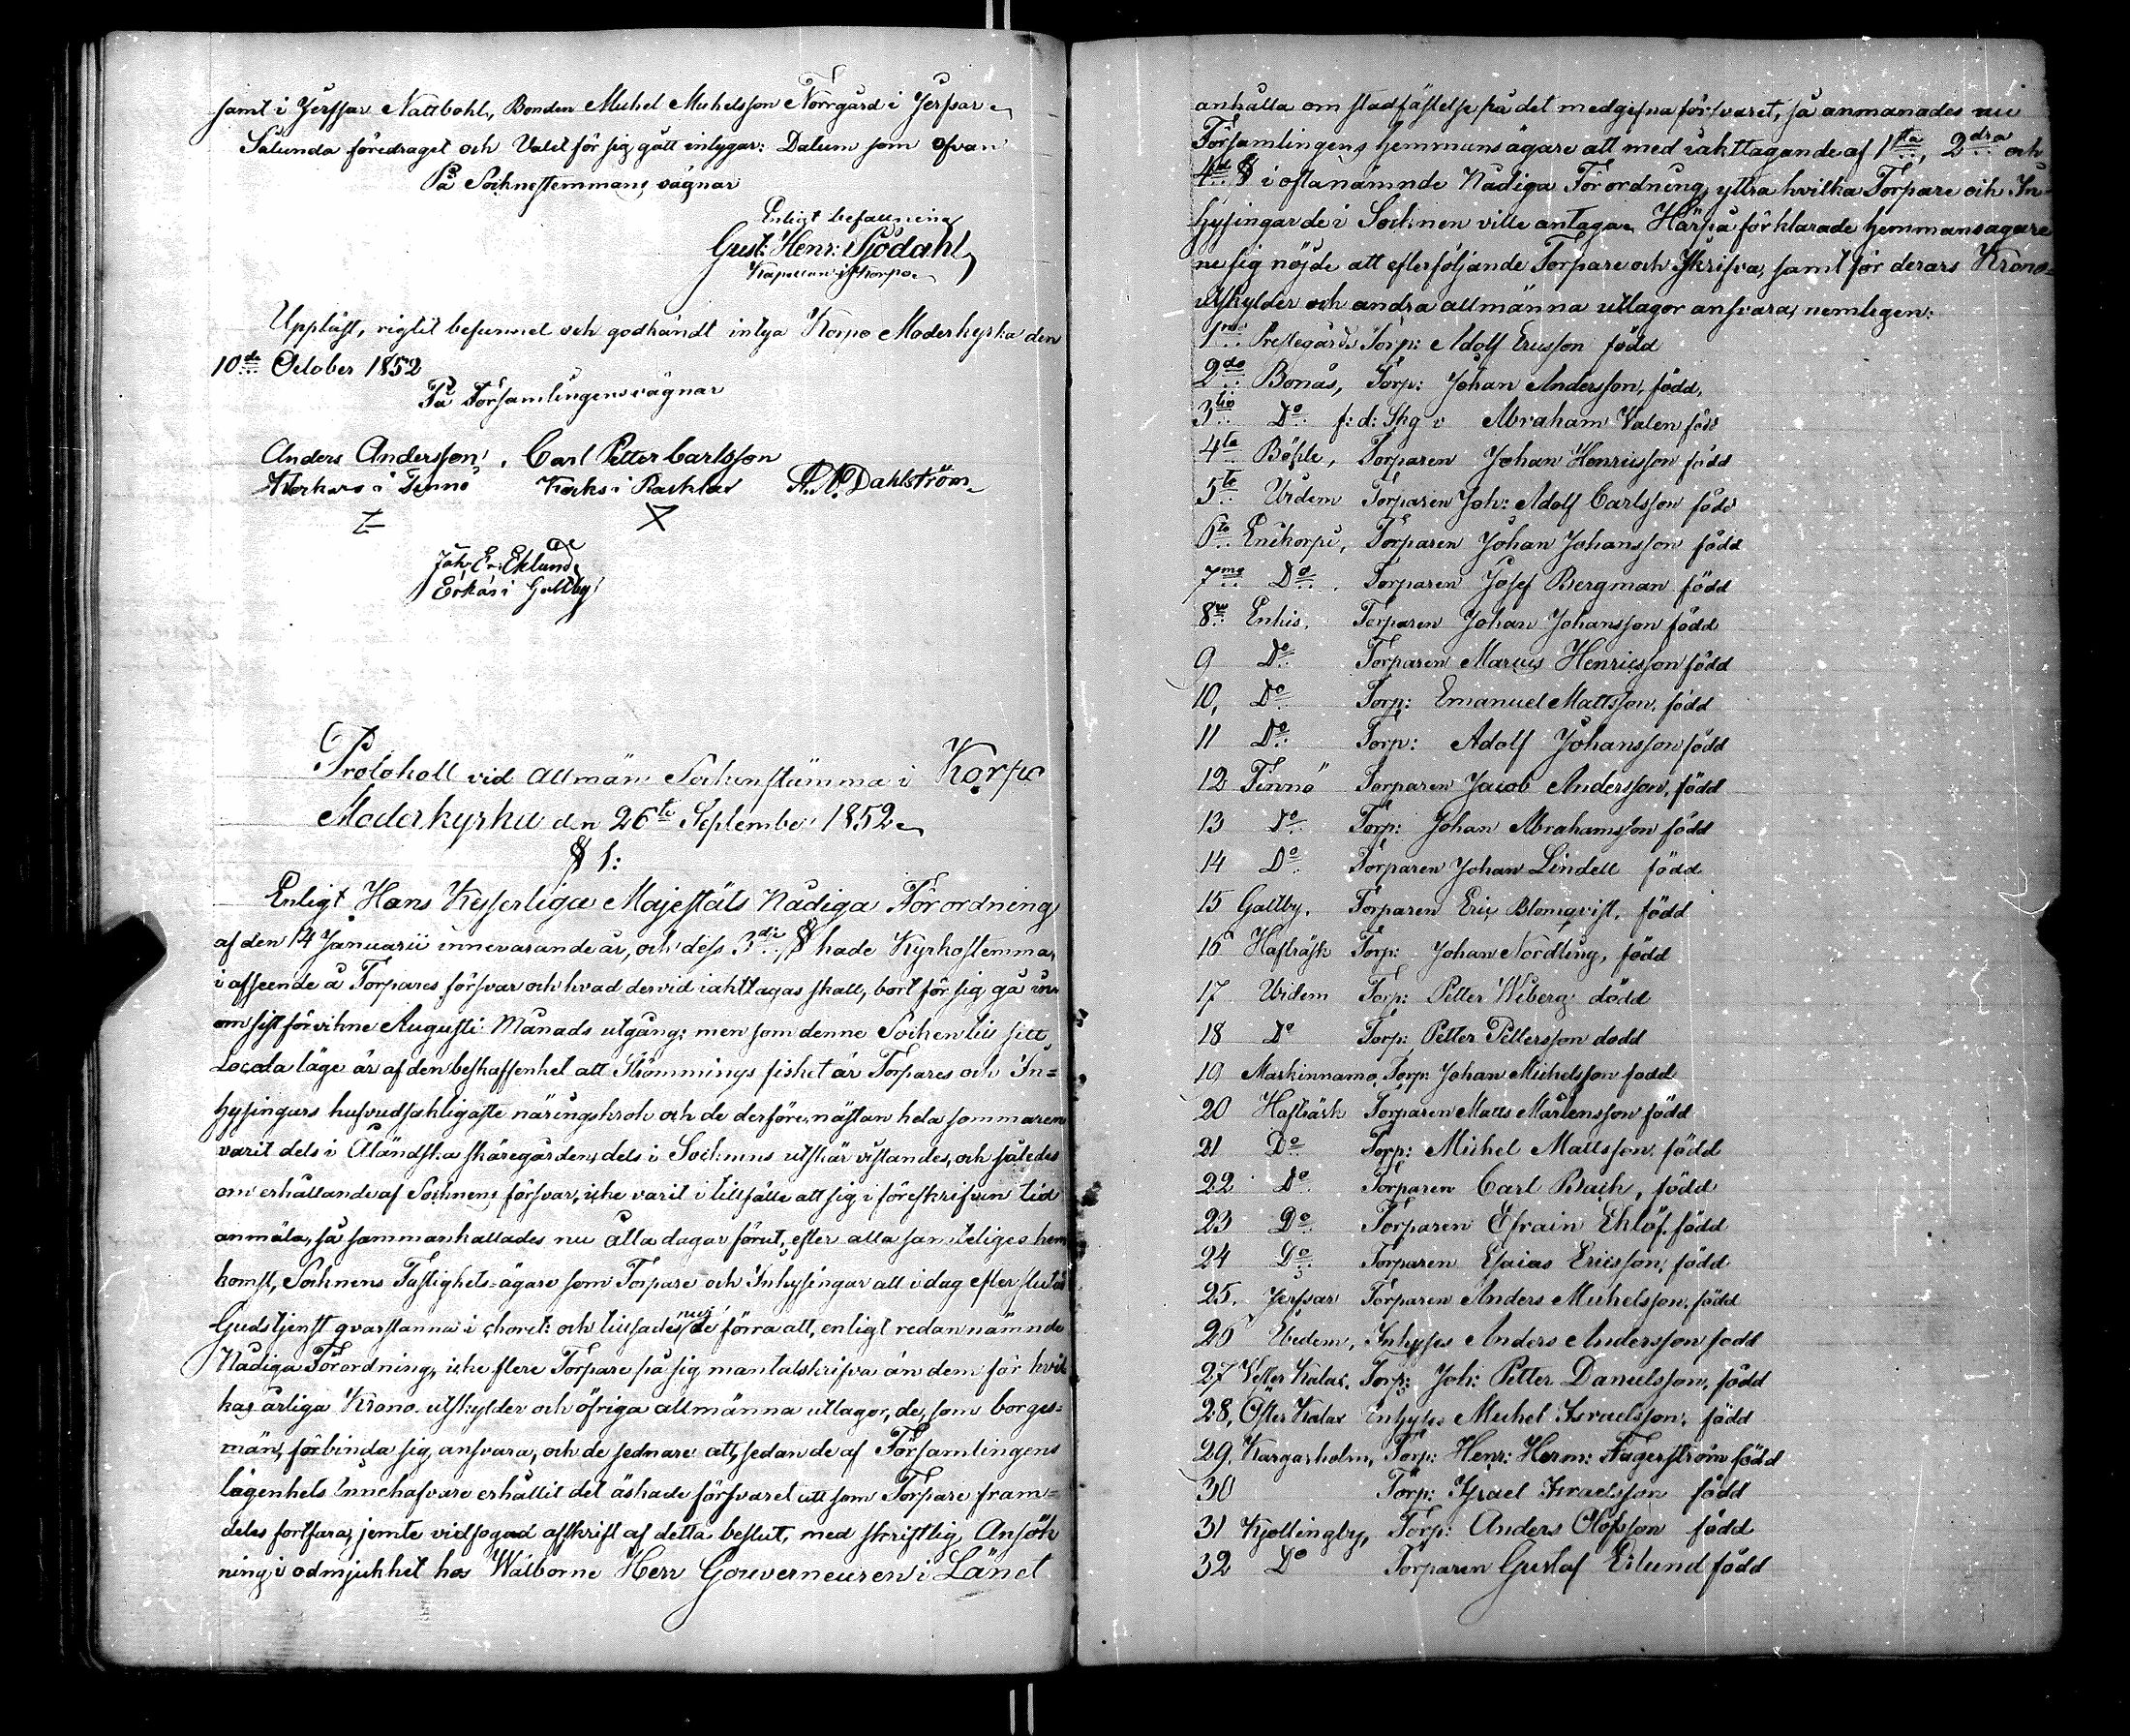 samt i Jerssar Nattbohl, Bonden Michel Michelsson Norrgård i Jerssar
Sålunda föredraget och Valet för sig gått intygar: Datum som ofvan
På Sochnestemmans vägnar
Enligt befallning
Gust: Henr: Sjödahl,
Kapellan i Korpo
Uppläst, rigtit befunnet och godkändt intya Korpo Moderkyrka den
10de October 1852
På Församlingens vägnar
Anders Andersson, Carl Petter Carlsson
i Finnö Kocks i A. N. Dahlström
Joh: E: Eklund
Erkas i Galtby
Protokoll vid Allmän Sockenstämma i Korpo
Moderkyrka den 26te September 1852
§ 1:
Enligt Hans Kejserliga Majestäts Nådiga Förordning
af den 14 Januarii innevarande år, och dess 3die § hade Kyrkostemma,
i afseende å Torpares försvar och hvad dervid iakttagas skall, bort för sig gå in-
om sist förvikne Augusti Månads utgång; men som denne Sochen till sitt
Locala läge är af den beskaffenhet att Strömmings fisket är Torpares och In=
hysingars hufvudsakligaste näringskrok och de derföre nästan hela sommaren
varit dels i Åländska skäregården, dels i Sochnens utskär vistandes, och således
om erhållande af Sochnens försvar, icke varit i tillfälle att sig i föreskrifven tid
anmäla, så sammankallades nu åtta dagar förut, efter alla samteliges hem
komst, Sochnens Fastighets-ägare som Torpare och Inhysingar att i dag efter slutad
Gudstjenst qvarstanna i choret: och tillsades nu de förra att, enligt redan nämnde
Nådiga Förordning, icke flere Torpare på sig mantalskrifva än dem för hvil
kas årliga Krono utskylder och öfriga allmänna utlagor, de, som borges=
män, förbinda sig ansvara, och de sednare att, sedan de af Församlingens
lägenhets Innehafvare erhållit det äskade försvaret att som Torpare fram=
deles fortfara, jemte vidfogad afskrift af detta beslut, med skriftlig Ansök
ning i ödmjukhet hos Wälborne Herr Gouverneuren i Länet
anhålla om stadfästelse på det medgifna försvaret, så anmanades nu
Församlingens hemmansägare att med iakttagande af 1sta, 2dra och
4de § i oftanämnde Nådiga Förordning, yttra hvilka Torpare och In=
hysingar de i Sochnen ville antaga. Härpå förklarade hemmansägare
ne sig nöjde att efterföljande Torpare och skrifva, samt för deras Krono=
utskylder och andra allmänna utlagor ansvara, nemligen:
1mo Prestegårds Torp: Adolf Ericsson född
2do Bonäs, Torp: Johan Andersson, född,
3tio Do f: d: Abraham Valen född
4to Böhle, Torparen Johan Henricsson född
5to Uidem Torparen Joh: Adolf Carlsson född
6to Enikorpi, Torparen Johan Johansson född
7mo Do Torparen Josef Bergman född
8vo Enkis, Torparen Johan Johansson född
9 Do Torparen Marcus Henricsson född
10, Do Torp: Emanuel Mattsson, född
11 Do Torp: Adolf Johansson född
12 Finnö Torparen Jacob Andersson, född
13 Do Torp: Johan Abrahamsson född
14 Do Torparen Johan Lindell född
15 Galtby, Torparen Eric Blomqvist, född
16 Hafträsk Torp: Johan Nordling, född
17 Uidem Torp: Petter Wiberg född
18 Do Torp: Petter Pettersson född
19 Markinnamo, Torp: Johan Michelsson född
20 Hafträsk Torparen Matts Mårtensson född
21 Do Torp: Michel Mattsson, född
22 Do Torparen Carl Bach, född
23 Do Torparen Efraim Eklöf, född
24 Do Torparen Esaias Ericsson, född
25. Jerssar Torparen Anders Michelsson, född
26 Uidem, Inhyses Anders Andersson född
27 Vester Kalax, Torp: Joh: Petter Danielsson, född
28, Öster Kalax Inhyses Michel Israelsson, född
29, Kargarholm, Torp: Henr: Herm: Fagerström född
30 Torp: Israel Israelsson född
31 Kjettingby, Torp: Anders Olofsson född
32 Do Torparen Gustaf Eklund född